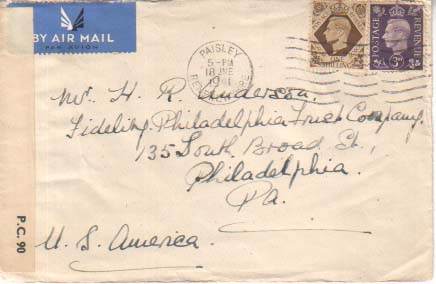 BY AIR MAIL
PAR AVION
PAISLEY
5-PM
18 JNE
19
RENFREWSHIRE
POSTAGE
REVENUE
3D
Mr. H. R. Anderson.
Fidelity Philadelphia Trust Company,
135 South Broad St.,
Philadelphia.
Pa.
U. S. America.
P.C. 90